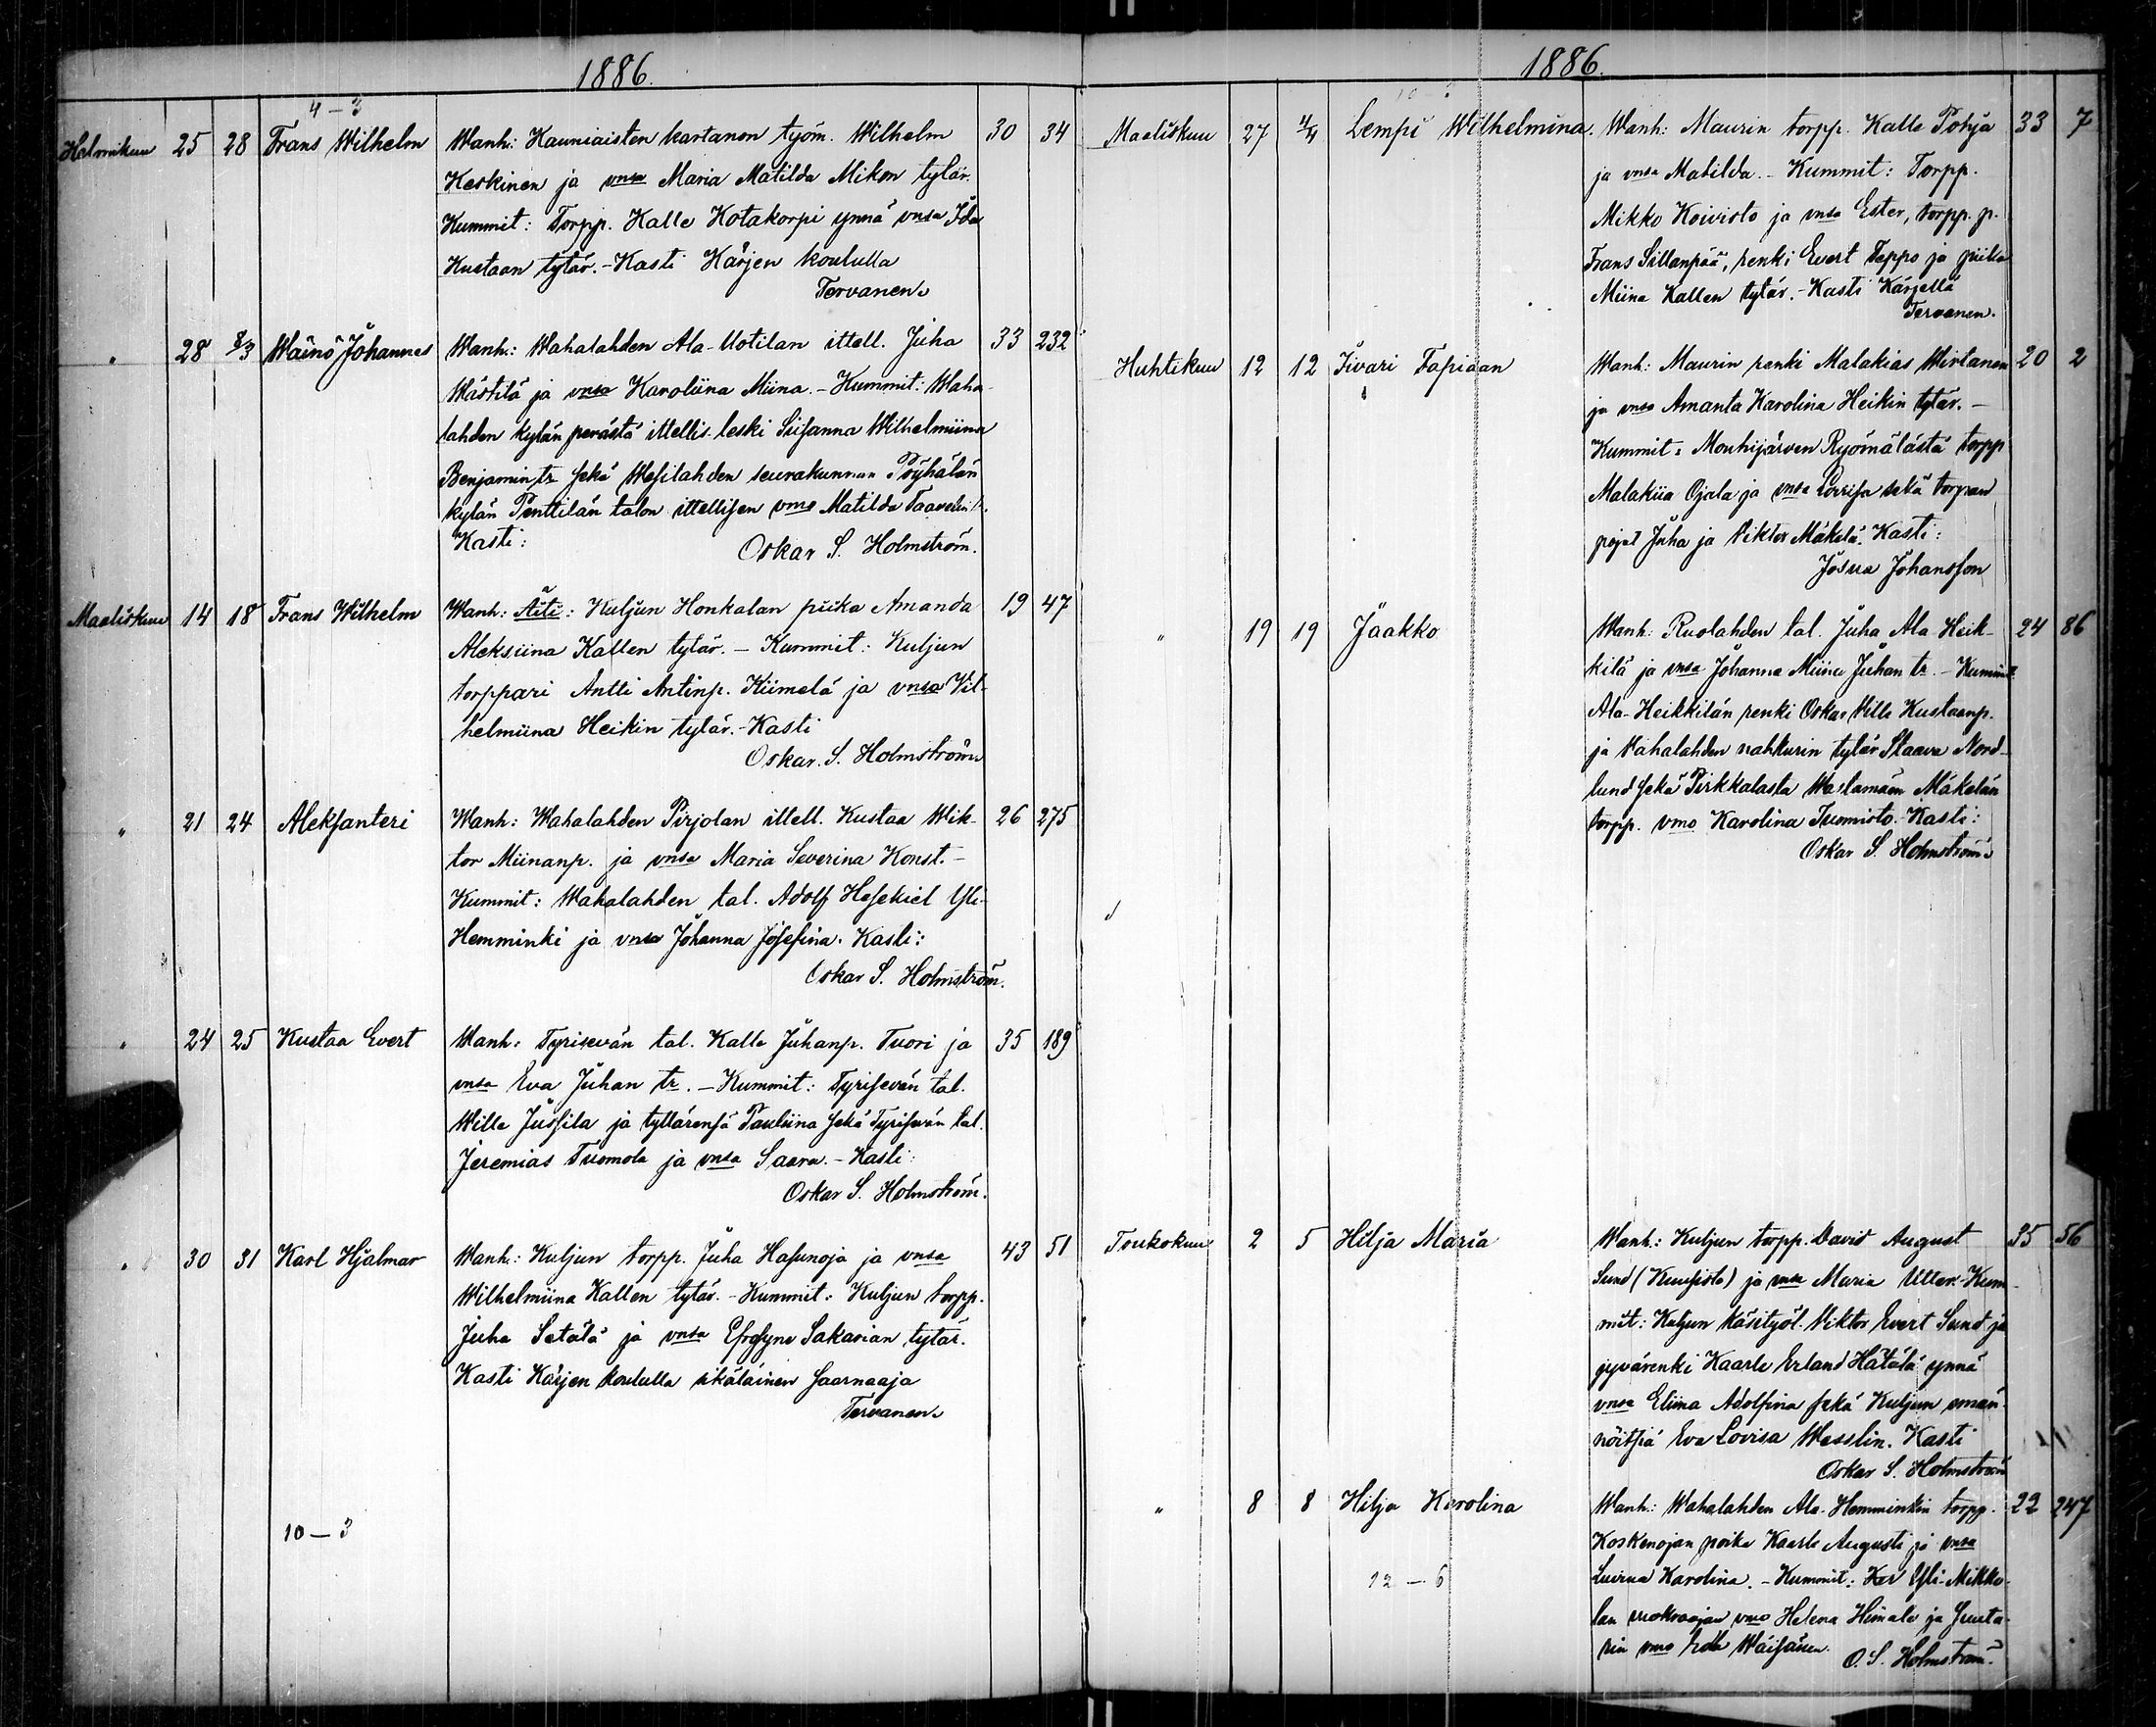 1886.
4 – 3
Helmikuu 25 28 Frans Wilhelm Wanh: Kauniaisten kartanon työm. Wilhelm 30 34
Keskinen ja vnsa Maria Matilda Mikon tytär.
Kummit: Torpp. Kalle Kotakorpi ynnä vnsa Ida
Kustaan tytär. - Kasti Kärjen koululla
Tervanen.
" 28 8/3 Wäinö Johannes Wanh: Wahalahden Ala-Uotilan ittell. Juha 33 232
Wästilä ja vnsa Karoliina Miina. - Kummit: Waha-
lahden kylän perästä ittellis. leski Susanna Wilhelmiina
Benjamin tr. sekä Wesilahden seurakunnan Pöyhälän
kylän Penttilän talon ittellisen vmo Matilda Taavetin tr.
Kasti: Oskar S. Holmström.
Maaliskuu 14 18 Frans Wilhelm Wanh: Äiti: Kuljun Honkalan piika Amanda 19 47
Aleksiina Kallen tytär. - Kummit: Kuljun
torppari Antti Antinp. Kiimelä ja vnsa Vil-
helmiina Heikin tytär. - Kasti
Oskar. S. Holmström.
" 21 24 Aleksanteri Wanh: Wahalahden Pirjolan ittell. Kustaa Wik- 26 275
tor Miinanp. ja vnsa Maria Severina Konst. -
Kummit: Wahalahden tal. Adolf Hesekiel Yli-
Hemminki ja vnsa Johanna Josefina. Kasti:
Oskar S. Holmström.
" 24 25 Kustaa Evert Wanh: Tyrisevän tal. Kalle Juhanp. Tuori ja 35 189
vnsa Eva Juhan tr. - Kummit: Tyrisevän tal.
Wille Jussila ja tyttärensä Pauliina sekä Tyrisevän tal.
Jeremias Tuomola ja vnsa Saara. - Kasti:
Oskar S. Holmström.
" 30 31 Karl Hjalmar Wanh: Kuljun torpp. Juha Hasunoja ja vnsa 43 51
Wilhelmiina Kallen tytär. - Kummit: Kuljun torpp.
Juha Satalä ja vnsa Efrosyne Sakarian tytär.
Kasti Kärjen koululla sikäläinen saarnaaja
Tervanen.
10 – 3
1886.
10 – 3
Maaliskuu 27 4/4 Lempi Wilhelmina. Wanh: Maurin torpp. Kalle Pohja 33 7
ja vnsa Matilda. - Kummit: Torpp.
Mikko Koivisto ja vnsa Ester, torpp. p.
Frans Sillanpää, renki Evert Teppo ja piika
Miina Kallen tytär. - Kasti Kärjellä
Tervanen.
Huhtikuu 12 12 Iivari Tapiaan Wanh: Maurin renki Malakias Wirtanen 20 2
ja vnsa Amanta Karolina Heikin tytär. -
Kummit: Mouhijärven Ryömälästä torpp
Malakiia Ojala ja vnsa Lovisa sekä torpan
pojat Juha ja Viktor Mäkelä. Kasti:
Josua Johansson
" 19 19 Jaakko Wanh: Ruolahden tal. Juha Ala-Heik- 24 86
kilä ja vnsa Johanna Miina Juhan tr. - Kummit
Ala-Heikkilän renki Oskar Ville Kustaanp.
ja Vahalahden nahkurin tytär Staava Nord-
lund sekä Pirkkalasta Mäkelän
torpp. vmo Karolina Tuomisto. Kasti:
Oskar S. Holmström.
Toukokuu 2 5 Hilja Maria Wanh: Kuljun torpp. David August 35 56
Sund (Kuusisto) ja vnsa Maria Ulla. Kum-
mit: Kuljun käsityöl. Viktor Evert Sund ja
jyvärenki Kaarle Erland Hätälä ynnä
vnsa Eliina Adolfina sekä Kuljun eman-
nöitsiä Eva Lovisa Wesslin. Kasti
Oskar S. Holmström
" 8 8 Hilja Karolina Wanh: Wahalahden Ala-Hemminkin torpp. 22 247
Koskenojan poika Kaarle Augusti ja vnsa
Karolina. - Kummit: Yli-Mikko-
lan vmo Helena ja Suuta-
rin vmo Ida Wäisänen. O. S. Holmström.
12 – 6